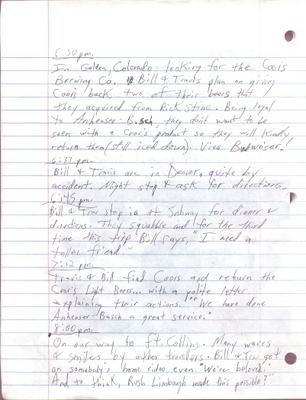 6:30 pm
In Golden, Colorado looking for the Coors
Brewing Co. Bill & Travis plan on giving
Coors back two of their beers that
they acquired from Rick Stine. Being loyal
to Anheuser-Busch, they don't want to be
seen with a Coors product so they will kindly
return them (still iced down). Viva Budweiser!
6:37 pm-
Bill & Travis are in Denver, quite by
accident. Might stop & ask for directions.
6:45 pm
Bill & Trav stop in at Subway for dinner &
directions. They squabble and for the third
time this trip Bill says, "I need a
taller friend"
7:12 pm
Travis & Bill find Coors and return the
Coors Light Beers... with a polite letter
explaining their actions. "We have done
Anheuser-Busch a great service."
8:00 pm-
On our way to ft. Collins. Many waves
& smiles by other travelers. Bill "I've got
an somebody's home video even. We're beloved."
And to think, Rush Limbaugh made this possible!"